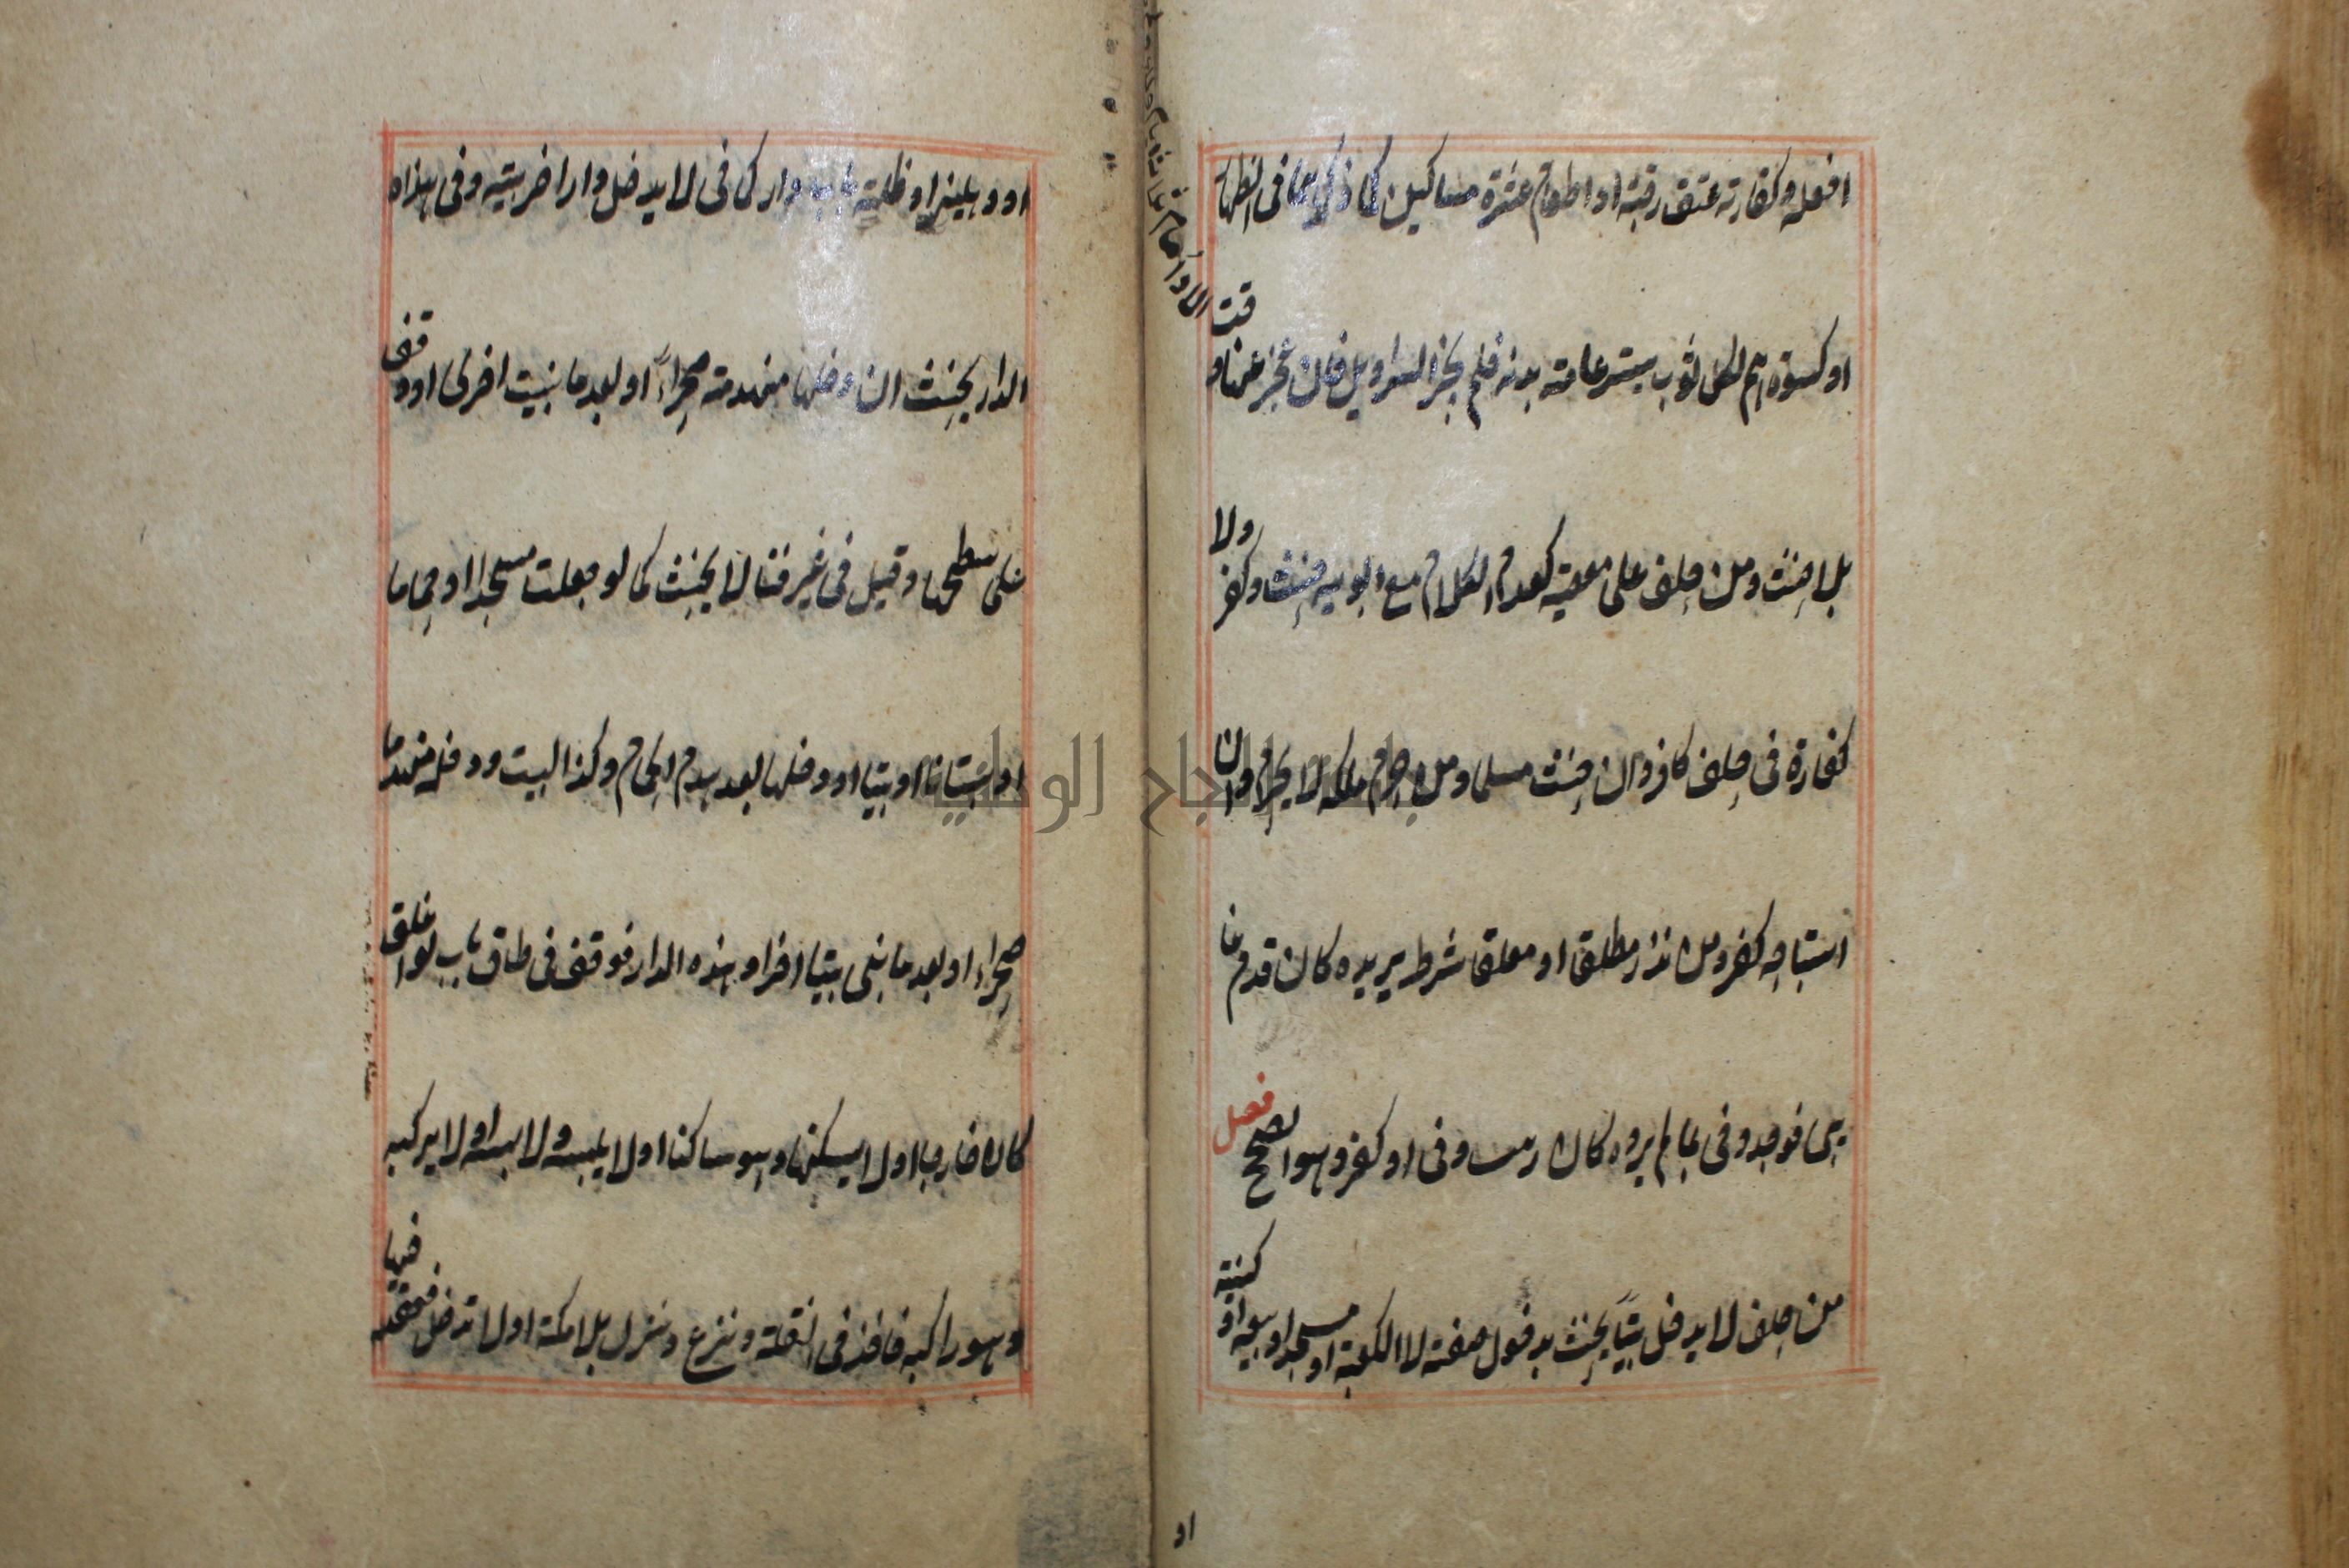 افعله وكفارته عتق رقبة او اطعام عشرة مساكين كما ذكرنا فى الظهار
او كسوتهم لكل ثوب يستر عامة بدنه فلم يجز السراويل فان عجز عنها وقت
بلا حنث ومن حلف على معصية كعدم الكلام مع ابويه حنث وكفر ولا
كفارة فى حلف كافر وان حنث مسلما ومن حرم ملكه لا يحرم وان
استباحه كفر ومن نذر مطلقا او معلقا بشرط يريده كان قدم غا
يبى فوجد وفى بما لم يرده كان زنيت وفى او كفر وهو الصحيح فصل
من حلف لا يدخل بيتا يحنث بدخول صفة لا الكعبة او مسجد او بيعة او كنيسة
او
او دهليز او ظلة باب دار كما فى لا يدخل دارا خربة وفى هذه
الدار يحنث ان دخلها منهدمة صحراء او بعد ما بنيت اخرى او وقف
على سطحها وقيل فى عرفنا لا يحنث كما لو جعلت مسجدا او حماما
او بستانا او بيتا او دخلها بعد هدم الحمام وكذا البيت ودخله منهدما
صحراء او بعد ما بنى بيتا اخر او هذه الدار فوقف فى طاق باب لو اغلق
كان خارجا او لا يسكنها وهو ساكنها او لا يلبسه وهو لابسه او لا يركبه
وهو راكبه فاخذ فى النقلة ونزع ونزل بلا مكث او لا تدخل فقعد فيها